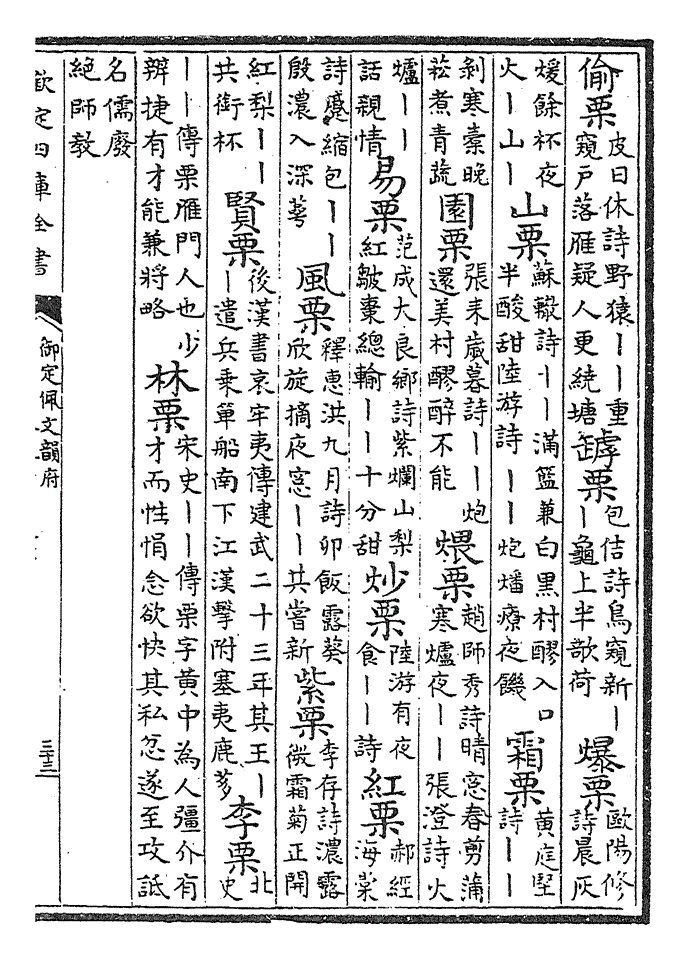 偷栗皮日休詩野猿丨丨重窺戶落雁疑人更繞塘罅栗包佶詩鳥窺新丨丨龜上半欹荷爆栗歐陽修詩晨灰
煖餘杯夜火丨山丨山栗蘇轍詩丨丨滿籃兼白黑村醪入口半酸甜陸游詩丨丨炮燔療夜饑霜栗黃庭堅詩丨丨
剝寒橐晚菘煮青蔬園栗張耒歲暮詩丨丨炮還美村醪醉不能煨栗趙師秀詩晴窓春剪蒲寒爐夜丨丨張澄詩火
爐丨丨話親情易栗范成大良鄉詩紫爛山梨紅皺棗總輸丨丨十分甜炒栗陸游有夜食丨丨詩紅栗郝經海棠
詩蹙縮包丨丨殷濃入深萼風栗釋惠洪九月詩卯飯露葵欣旋摘夜窓丨丨共嘗新紫栗李存詩濃露微霜菊正開
紅梨丨丨共銜杯賢栗後漢書哀牢夷傳建武二十三年其王丨丨遣兵乘箄船南下江漢擊附塞夷鹿茤李栗北史
丨丨傳栗雁門人也少辨捷有才能兼將略林栗宋史丨丨傳栗字黃中為人彊介有才而性悁忿欲快其私忿遂至攻詆
名儒廢絶師教
欽定四庫全書
御定佩文韻府
三十三